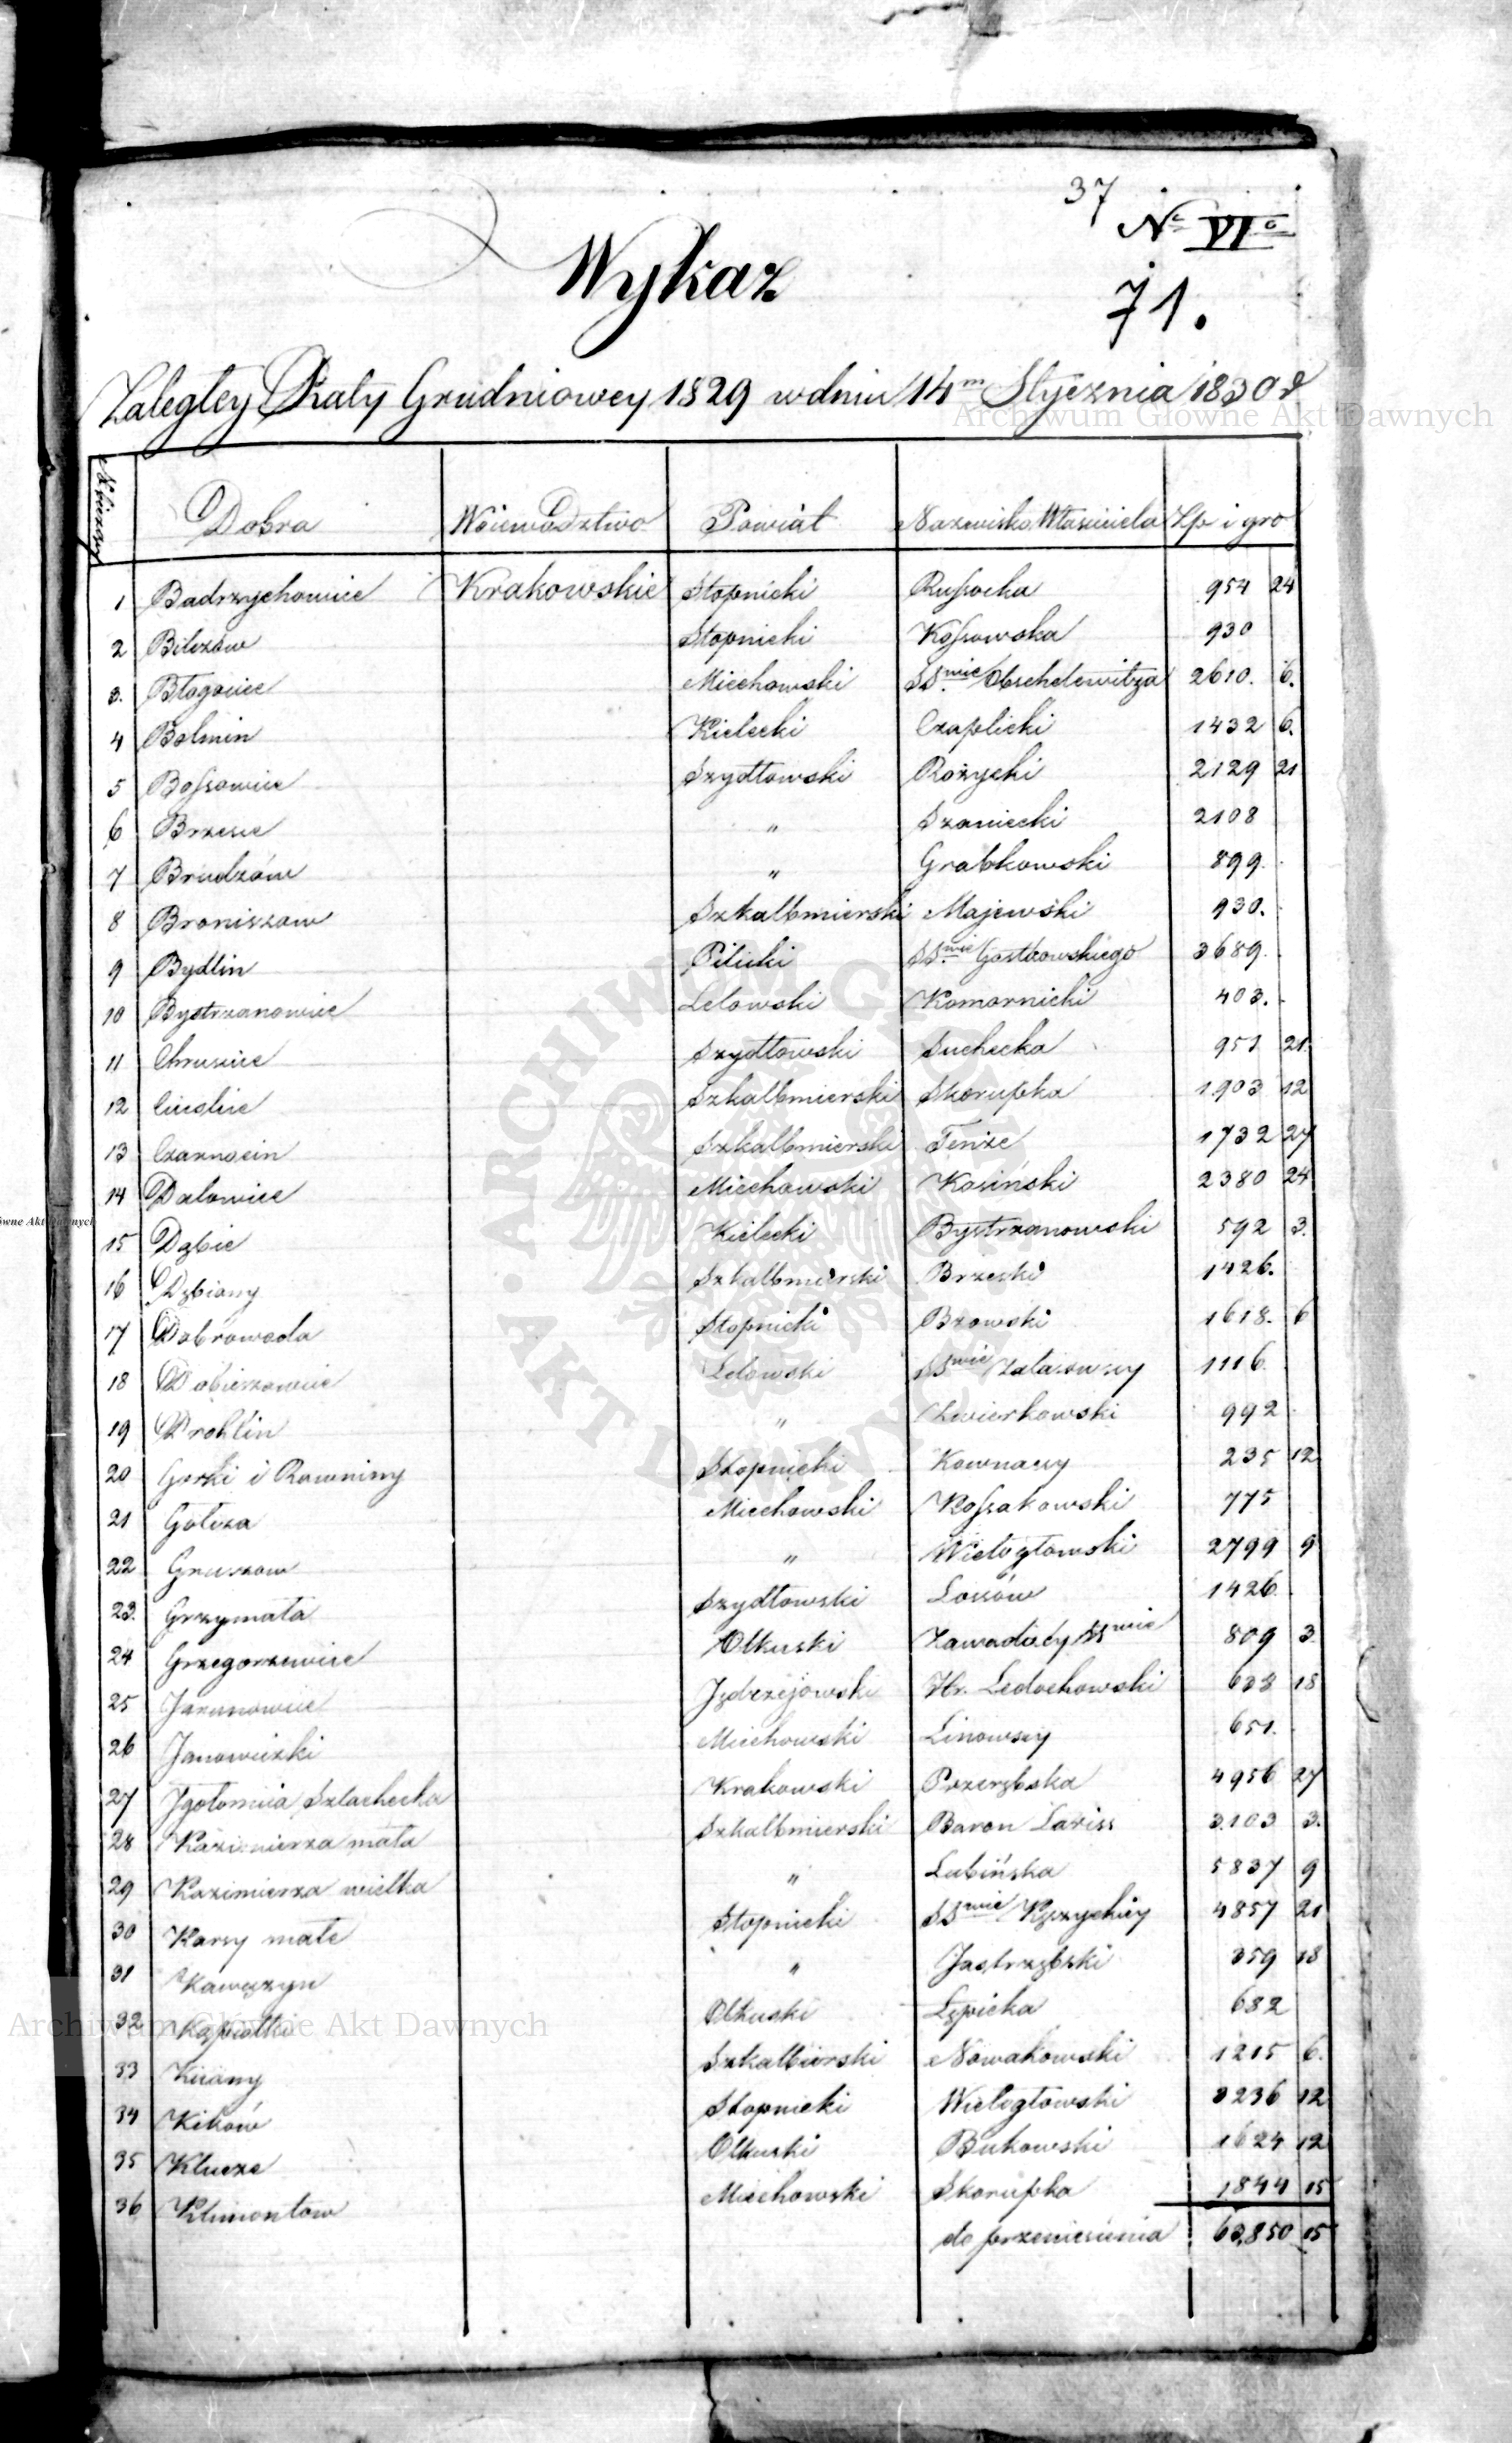 37
Nº VIº
71.
Wykaz
Zaległey Raty Grudniowey 1829 w dniu 14m Stycznia 1830 r
Dobra Woiewództwo Powiat Nazwisko Właściciela Zp i gro
1 Badrzychowice Krakowskie Stopnicki Russocka 954 24
2 Bilczów Stopnicki Kossowska 930
3. Błogocice Miechowski SSwie Obschelewitza 2610. 6.
4 Bolmin Kielecki Czaplicki 1432 6.
5 Bossowice Szydłowski Rożycki 2129 21
6 Brzescie " Szaniecki 2108
7 Brudzów " Grabkowski 899.
8 Broniszow Szkalbmierski Majewski 930.
9 Bydlin Pilicki SSwie Gostkowskiego 3689.
10 Bystrzanowice Lelowski Komornicki 403.
11 Chruscice Szydłowski Suchecka 951 21.
12 Cieslin Szkalbmierski Skorupka 1903 12
13 Czarnocin Szkalbmierski Tenże 1732 27
14 Dalowice Miechowski Kosiński 2380 24
15 Dąbie Kielecki Bystrzanowski 592 3.
16 Dębiany Szkalbmierski Brzeski 1426.
17 Dobrowoda Stopnicki Bzowski 1618. 6
18 Dobieszowice Lelowski SSwie 1116.
19 Drohlin " Zwierkowski 992
20 Gorki i Rowniny Stopnicki Kownaccy 235 12
21 Gołcza Miechowski Kossakowski 775
22 Gruszow " Wielogłowski 2799 9
23. Grzymała Szydłowski Lossów 1426.
24 Grzegorzewice Olkuski Zawadzcy SSwie 809 3.
25 Jaronowice Jędrzejowski Hr. Ledochowski 628 18
26 Janowiczki Miechowski Linowscy 651.
27 Jgołomia Szlachecka Krakowski Przerębska 4956 27
28 Kazimierza mała Szkalbmierski Baron Lariss 3.103 3.
29 Kazimierza wielka " Lubińska 5837 9
30 Karsy małe Stopnicki SSwie Kęszyckiey 4857 21
31 Kawęczyn " Jastrzębski 359 18
32 Kąpiołki Olkuski Łępicka 682
33 Kiiany Szkalbierski Nowakowski 1215 6.
34 Kików Stopnicki Wielogłowski 3236 12
35 Klucze Olkuski Bukowski 1624 12
36 Klimontow Miechowski Skorupka 1844 15
do przeniesienia 63,850 15
Archiwum Główne Akt Dawnych
Archiwum Główne Akt Dawnych
ówne Akt Dawnych
ARCHIWUM GŁÓWNE AKT DAWNYCH